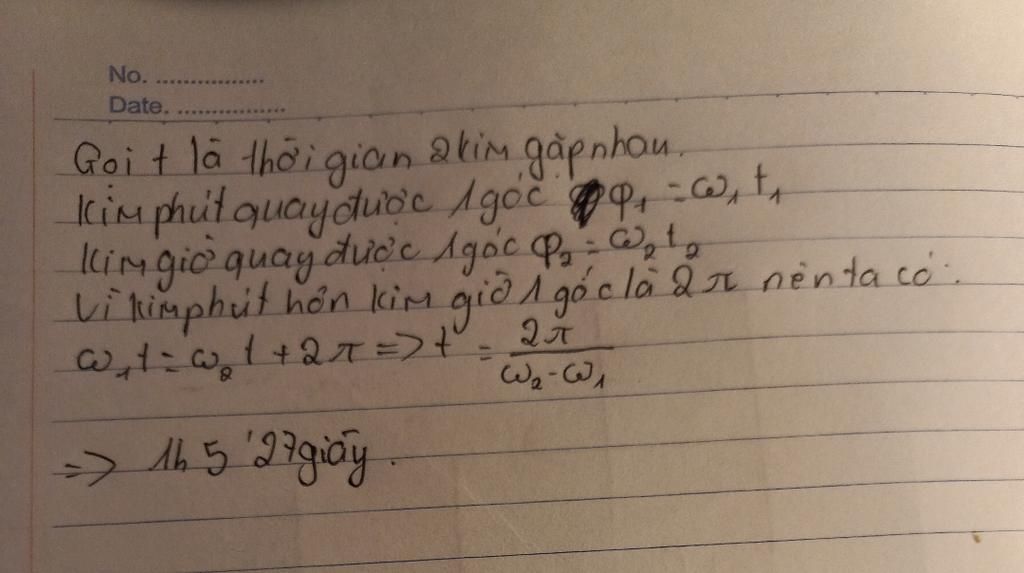 No. ................
Date. ................
Gọi t là thời gian 2 kim gặp nhau.
Kim phút quay được 1 góc φ₁ = ω₁ t₁
Kim giờ quay được 1 góc φ₂ = ω₂ t₂
Vì kim phút hơn kim giờ 1 góc là 2π nên ta có:
ω₁t = ω₂t + 2π => t = 2π / (ω₂ - ω₁)
=> 1h 5' 27 giây.